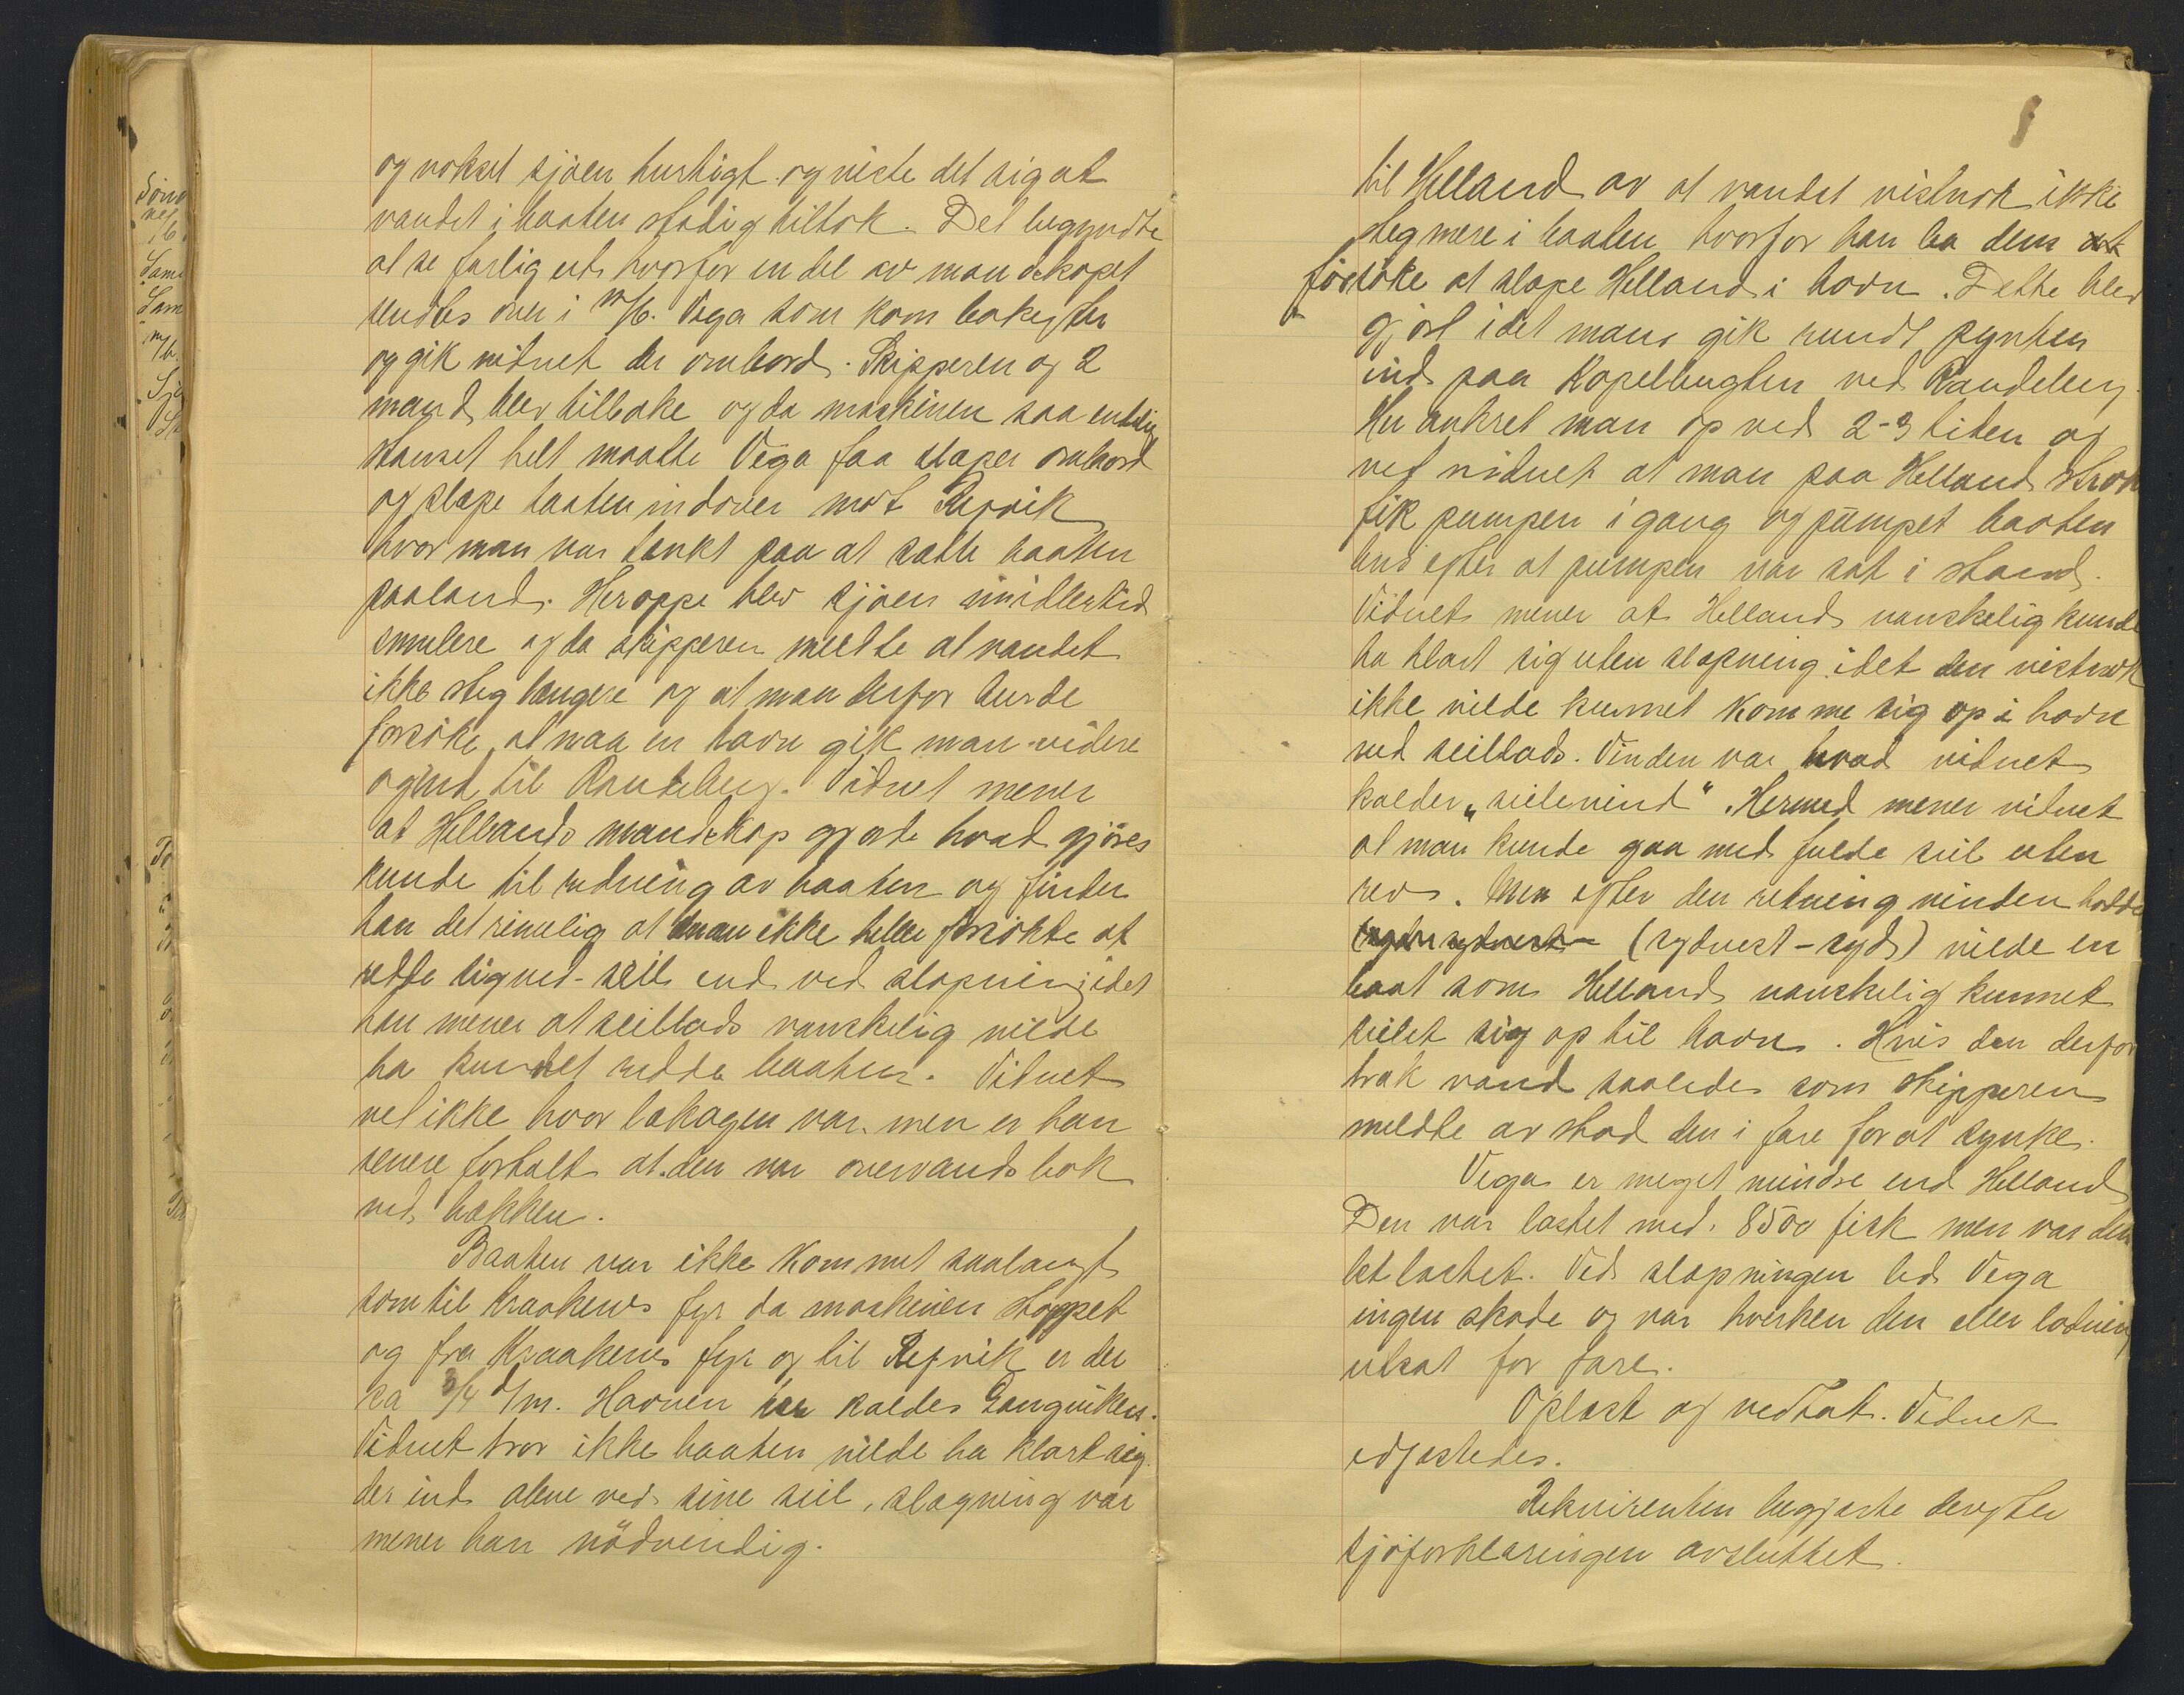 og vokset sjøen hurtigt og viste det sig at
vandet i baaten stadig tiltok. Det begyndte
at se farlig ut hvorfor en del av mandskapet
sendtes over i M/b. Vega som kom bakefter
og gik vidnet der ombord. Skipperen og 2
mand blev tilbake og da maskinen saa endelig
stanset helt maatte Vega faa slæper ombord
og slæpe baaten indover mot Refvik
hvor man var tænkt paa at sætte baaten
paaland. Heroppe blev sjøen imidlertid
smulere og da skipperen meldte at vandet
ikke steg længere og at man derfor burde
forsøke at naa en havn gik man videre
og ind til Raudeberg. Vidnet mener
at Hellands mandskap gjorde hvad gjöres
kunde til redning av baaten og finder
han det rimelig at man ikke heller forsökte at
redde sig ved seil end ved slæpning idet
han mener at seillads vanskelig vilde
ha kundet redde baaten. Vidnet
vet ikke hvor lækagen var men er han
senere fortalt at den var overvands bak
ved hækken.
Baaten var ikke kommet saalangt
som til Kraakenes fyr da maskinen stoppet
og fra Kraakenes fyr og til Refvik er der
ca 3/4 /m. Havnen her kaldes Sangviken.
Vidnet tror ikke baaten vilde ha klart sig
der ind alene ved sine seil, slæpning var
mener han nödvendig.
til Helland av at vandet vistnok ikke
steg mere i baaten hvorfor han ba dem
forsöke at slæpe Helland i havn. Dette blev
gjort idet man gik rundt pynten
ind paa Kapelbugten ved Raudeberg.
Her ankret man op ved 2-3 tiden og
vet vidnet at man paa Helland strax
fik pumpen igang og pumpet baaten
læns efter at pumpen var sat i stand.
Vidnet mener at Helland vanskelig kunde
ha klart sig uten slæpning idet den vistnok
ikke vilde kunnet komme sig op i havn
ved seillads. Vinden var hvad vidnet
kalder „seilevind". Hermed mener vidnet
at man kunde gaa med fulde seil uten
rev. Men efter den retning vinden hadde
(sydvest-syd) vilde en
baat som Helland vanskelig kunnet
seilet sig op til havn. Hvis den derfor
trak vand saaledes som skipperen
meldte av stod den i fare for at synke.
Vega er meget mindre end Helland
Den var lastet med 8500 fisk men var den
let lastet. Ved slæpningen led Vega
ingen skade og var hverken den eller ladning
utsat for fare.
Oplæst og vedtat. Vidnet
edfæstedes.
Rekvirenten begjærte derefter
sjöforklaringen avsluttet.